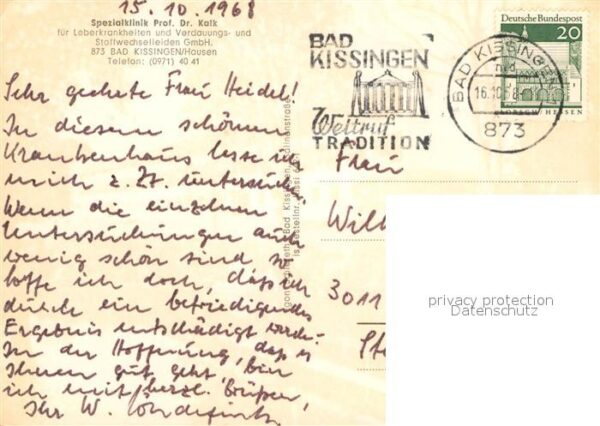 15.10.1968
Spezialklinik Prof. Dr. Kalk
für Leberkrankheiten und Verdauungs- und
Stoffwechselleiden GmbH.
873 BAD KISSINGEN/Hausen
Telefon: (0971) 40 41
Sehr geehrte Frau Heidel!
In diesem schönen
Krankenhaus lasse ich
mich z. Zt. untersuchen.
Wenn die einzelnen
Untersuchungen auch
wenig schön sind so
hoffe ich doch, daß ich
durch ein befriedigendes
Ergebnis entschädigt werde.
In der Hoffnung, daß es
Ihnen gut geht, bin
ich mit herzl. Grüßen,
Ihr W.
BAD
KISSINGEN
Weltruf
TRADITION
BAD KISSINGEN
16.10.68
873
Deutsche Bundespost
20
LORSCH/HESSEN
Frau
Will
3011
privacy protection
Datenschutz